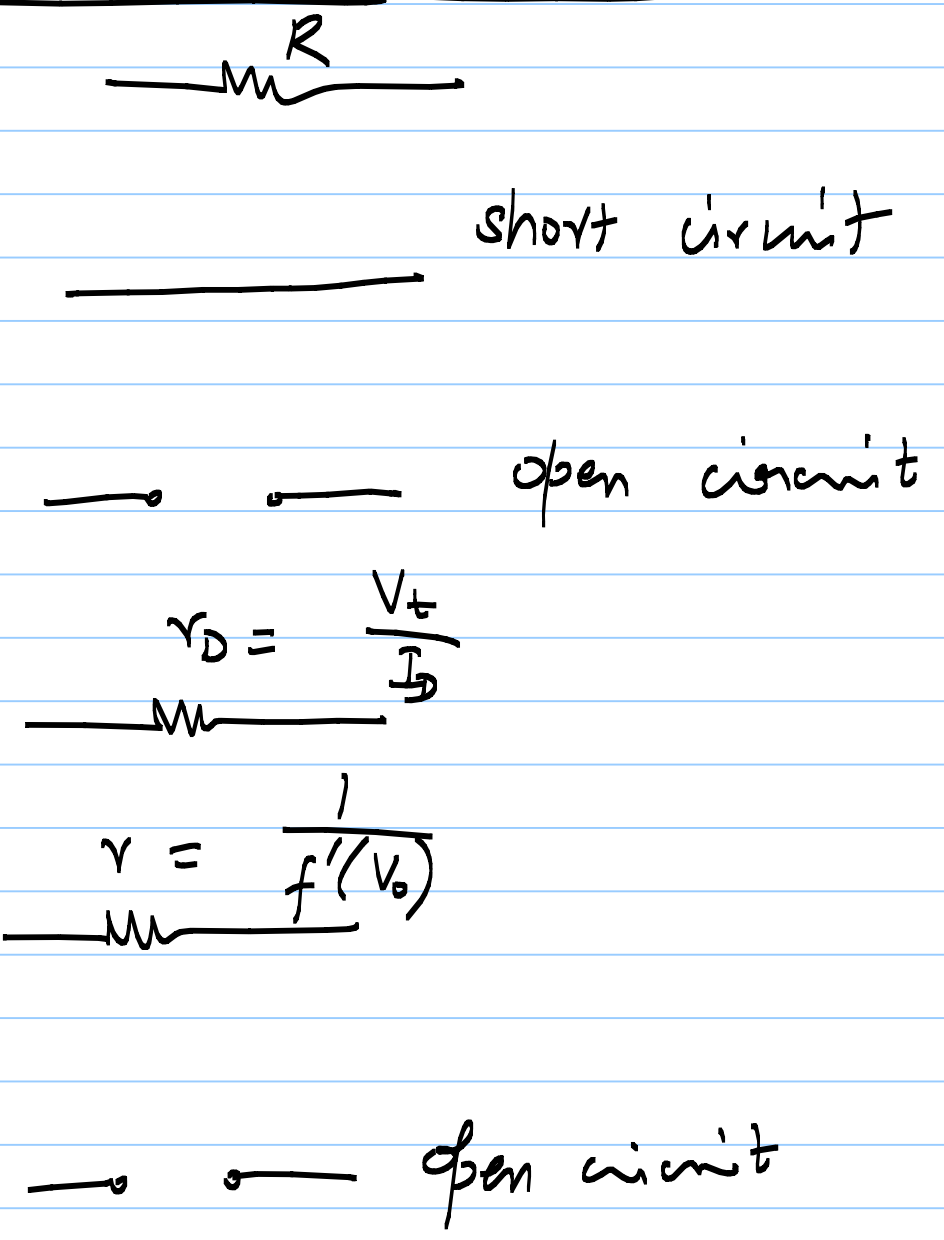 R
short circuit
open circuit
r_D = V_t / I_D
r = 1 / f'(V_o)
open circuit